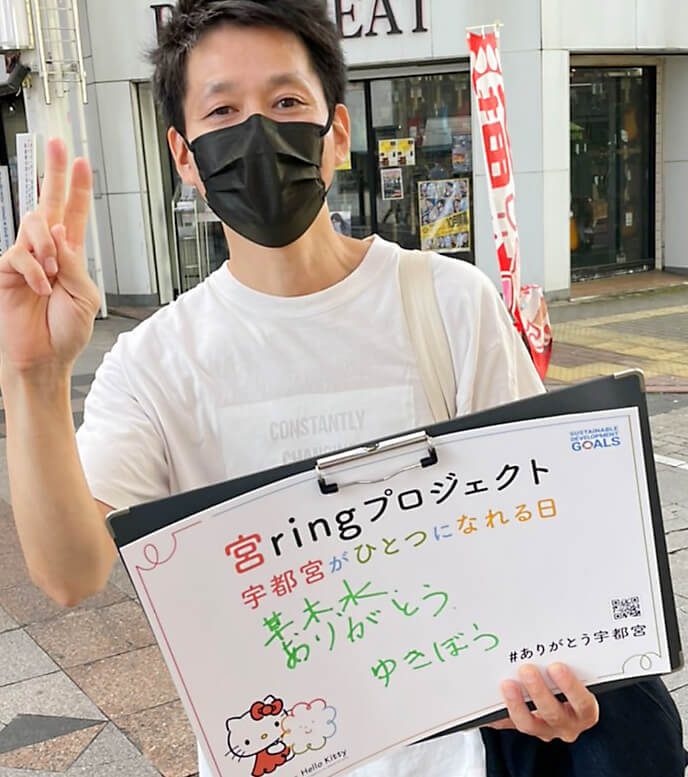 EAT
CONSTANTLY
SUSTAINABLE
DEVELOPMENT
GOALS
宮ringプロジェクト
宇都宮がひとつになれる日
ありがとう
ゆきぼう
#ありがとう宇都宮
Hello Kitty